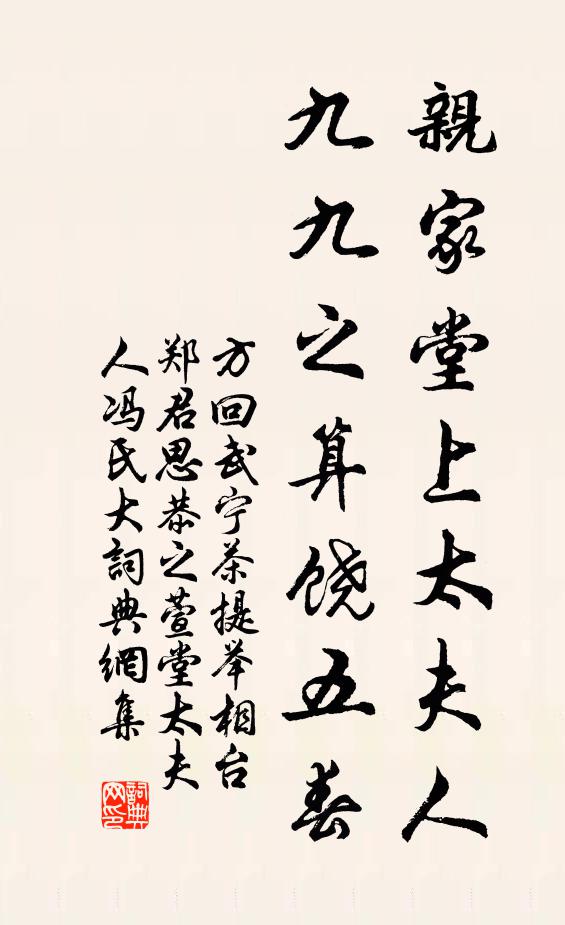 親家堂上太夫人
九九之算饶五春
方回武宁茶提举相台
郑君思恭之萱堂太夫
人冯氏大詞典網集
詞典网印